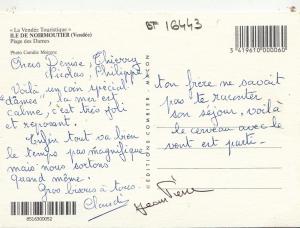 « La Vendée Touristique »
ILE DE NOIRMOUTIER (Vendée)
Plage des Dames
Photo Camille
16443
3 419610 000060
Chers Denise, Thierry
Nicolas, Philippe
Voilà un coin spécial
"dames", la mer est
calme, c'est très joli
et reposant.
Enfin tout va bien
le temps pas magnifique
mais nous sortons
quand même.
Gros bisous à tous.
Claud
Jean Pierre
ÉDITIONS COMBIER MACON
ton frère ne savait
pas te raconter
son séjour, voilà
le cerveau avec le
vent est parti.
8516300052